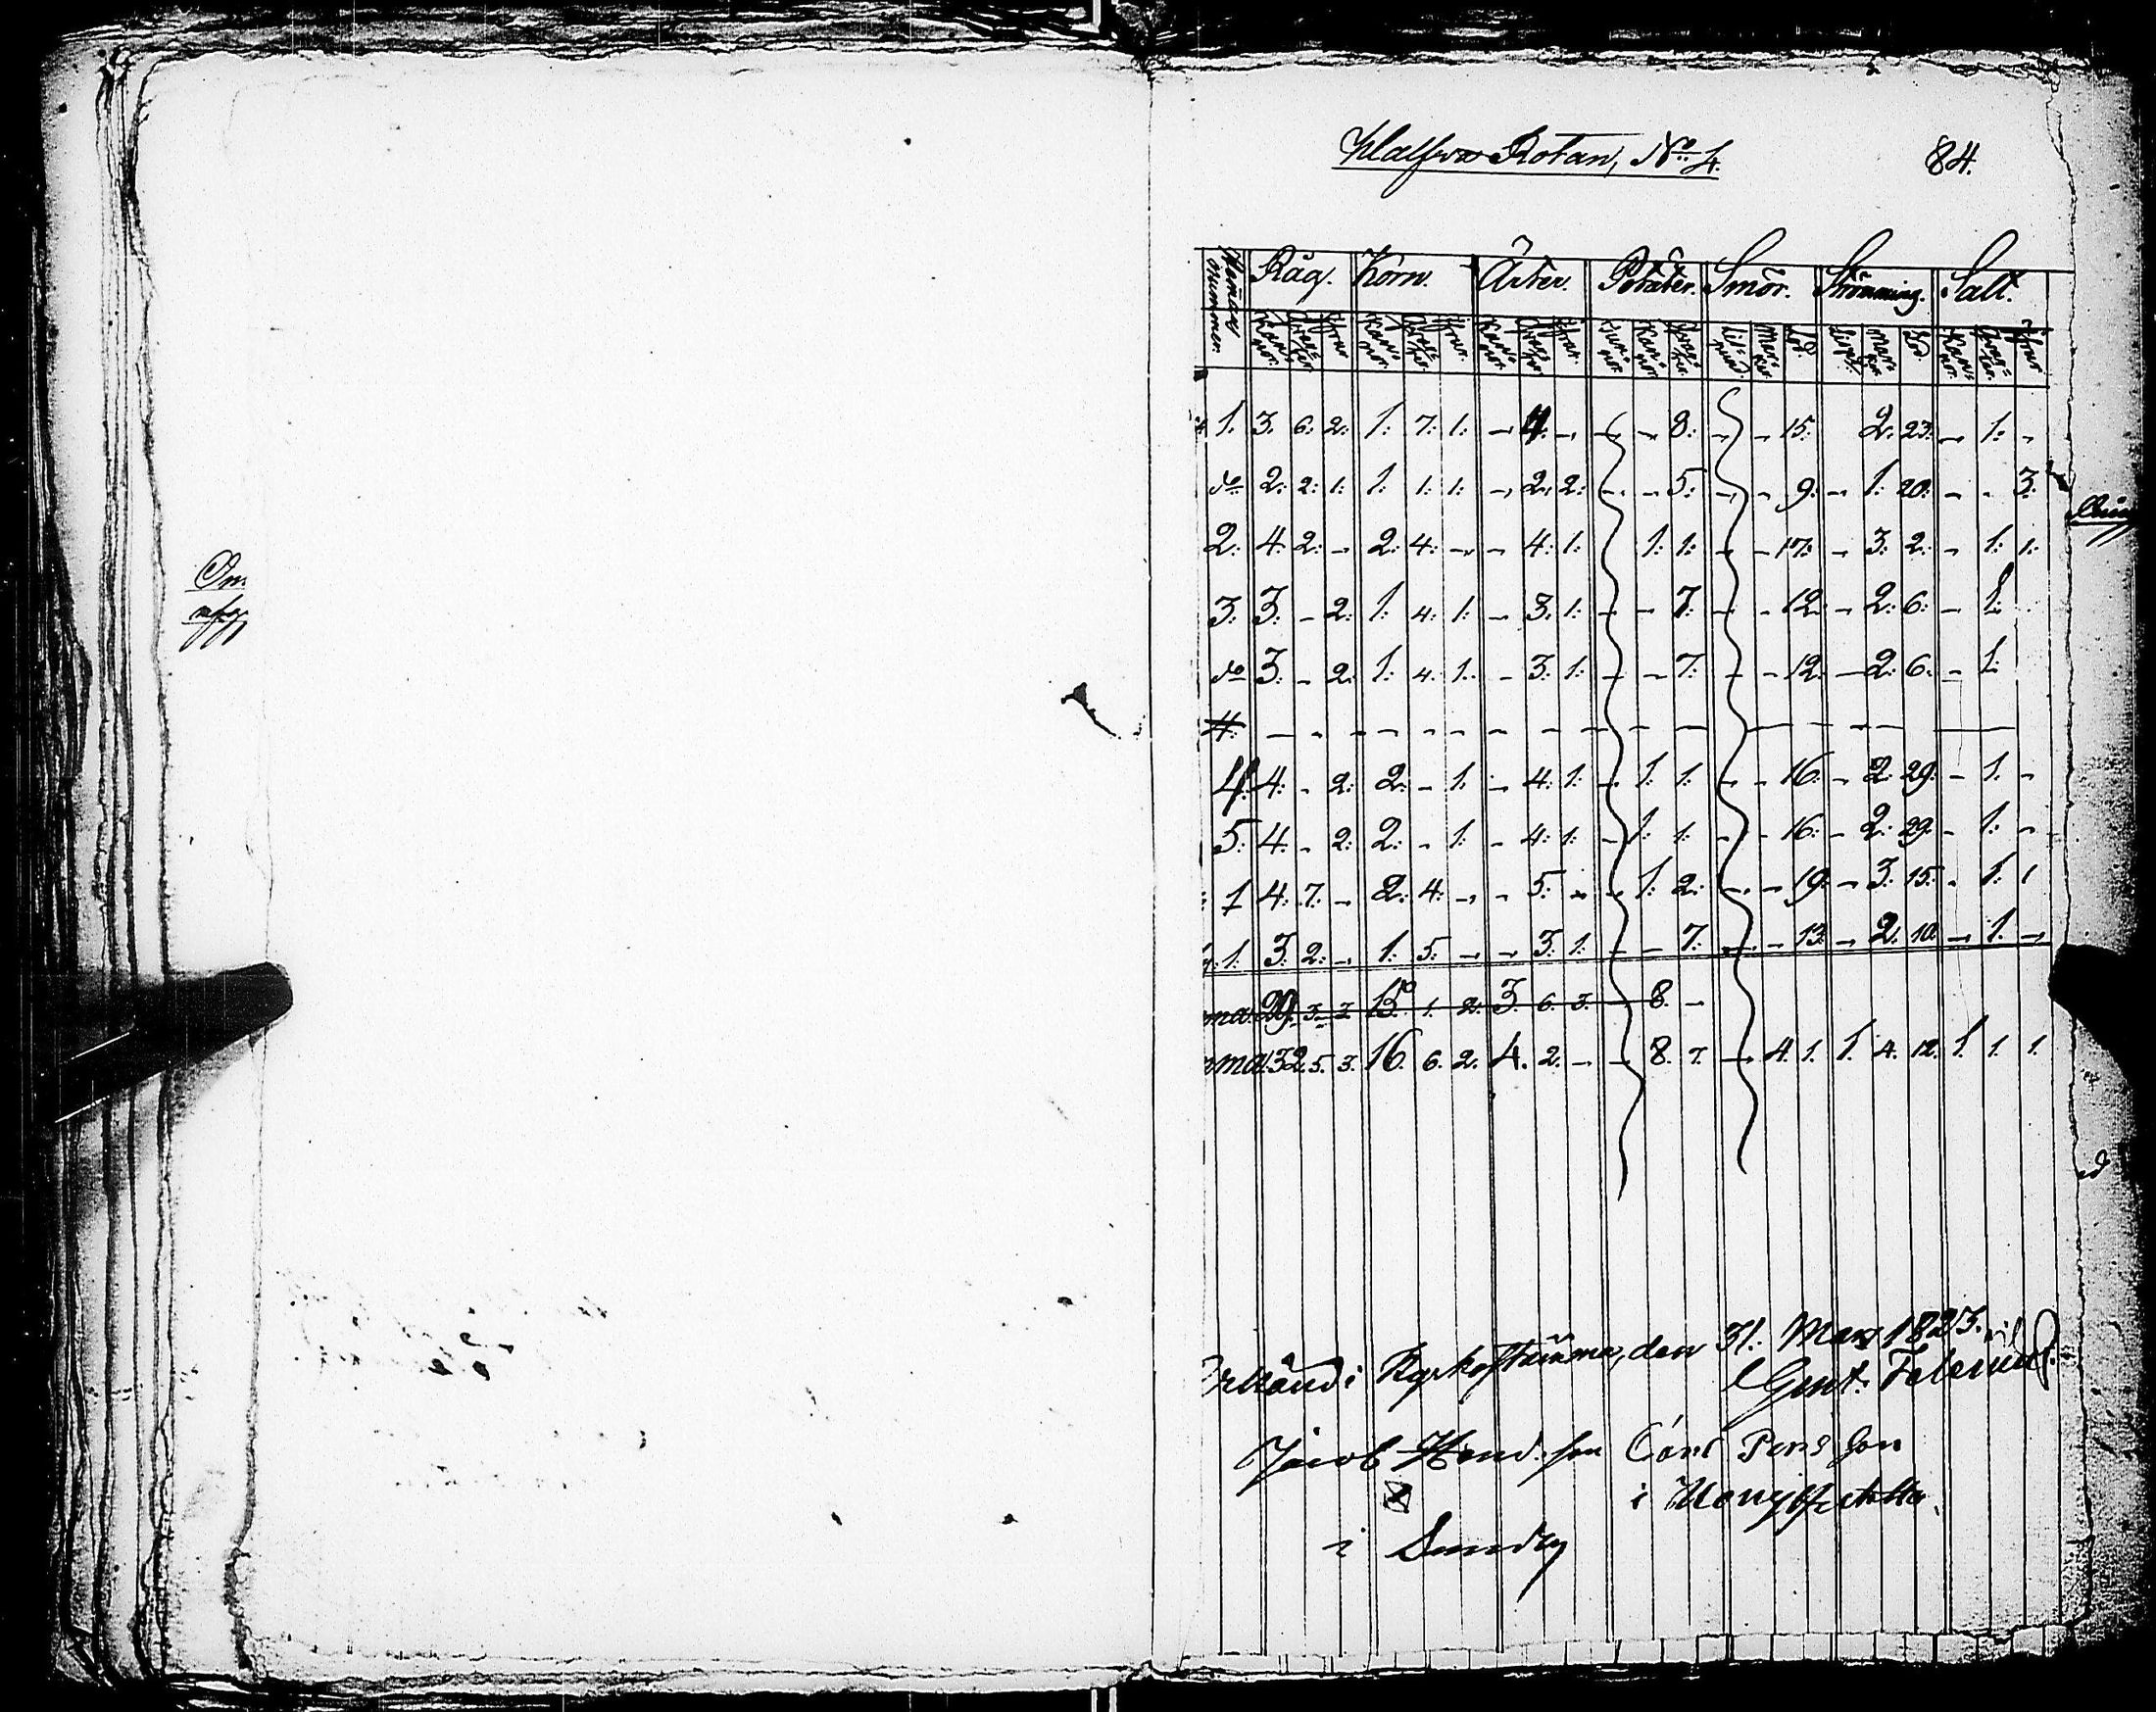 Om
Rotan, No 4. 84.
Nummer. Råg. Korn. Ärter. Potäter. Smör. Strömming. Salt.
Kannor. Qvarter Jfrur Kannor. Qvarter. Jfrur. Kannor. Qvarter. Jfrur. Tunnor. Kannor. Qvarter. Lispund. Marker. Lod. Lisp. Marker Lod Kannor. Qvarter. Jfrur
1. 3. 6: 2: 1: 7: 1: – 4. – – – 8: – – 15: 2. 23. – 1: –
do 2: 2: 1: 1: 1: 1: – 2: 2: – – 5: – – 9: – 1: 20: – – 3:
2: 4: 2: – 2: 4: – – 4: 1: 1: 1: – – 17: – 3: 2: – 1: 1:
3. 3: – 2: 1: 4: 1: – 3: 1: – – 7: – – 12: – 2: 6: – 1:
do 3: – 2: 1: 4: 1: – 3: 1: – – 7: – – 12: – 2: 6: – 1:
4: – – – – – – – – – – – – – – – – – –
4: 4: – 2: 2: – 1: – 4: 1: – 1: 1: – – 16: – 2: 29: – 1: –
5: 4: – 2: 2: – 1: – 4: 1: – 1: 1: – – 16: – 2: 29: – 1: –
1 4: 7: – 2: 4: – – 5. – – 1: 2: – – 19: – 3: 15: – 1: 1
1: 3: 2: – 1: 5: – – 3: 1: – – 7: – – 13: – 2. 10: – 1: –
29. 3. 3 13. 1. 2. 3. 6. 3. – 8. –
32. 5. 3. 16. 6. 2. 4. 2. – – 8. 7. – 4. 1. 1. 4. 12. 1. 1. 1.
i Kyrkostämma, den 31. Mars 1823.
Jacob Hend. son Carl Pers Son
i
i Sundby